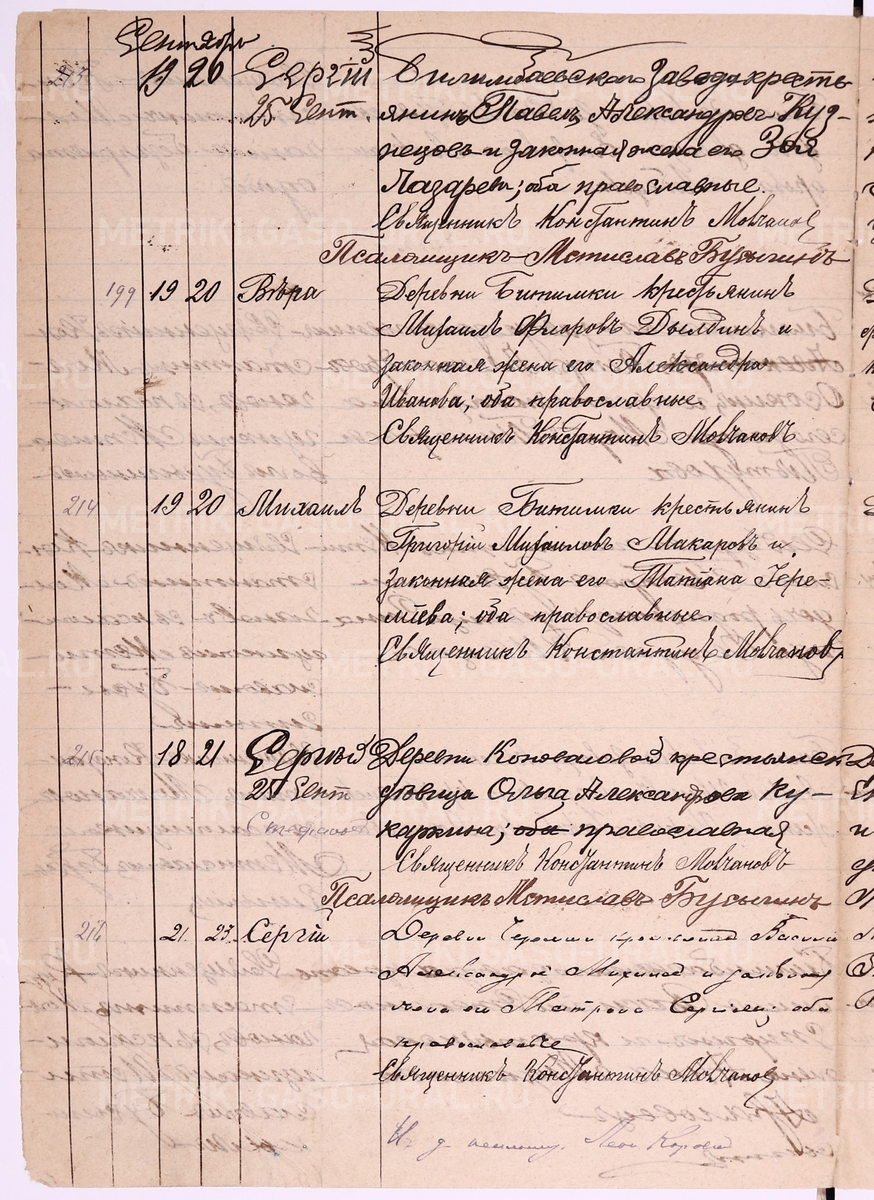 Сентябрь
19 20 Сергій Билимбаевскаго Завода кресть-
25 Сент. янинъ Павелъ Александровъ Куз-
нецовъ и законная жена его Зоя
Лазарева; оба православные.
Священникъ Константинъ Мовчановъ
Псаломщикъ Мстиславъ Бусыгинъ
199 19 20 Вѣра Деревни Битимки крестьянинъ
Михаилъ Флоровъ Дылдинъ и
законная жена его Александра
Иванова; оба православные.
Священникъ Константинъ Мовчановъ
214 19 20 Михаилъ Деревни Битимки крестьянинъ
Григорій Михаиловъ Макаровъ и
законная жена его Татіана Іере-
міева; оба православные.
Священникъ Константинъ Мовчановъ
215 18 21 Сергій Деревни Коноваловой крестьянск
25 Сент дѣвица Ольга Александрова Ку-
каркина; оба православная
Священникъ Константинъ Мовчановъ
Псаломщикъ Мстиславъ Бусыгинъ
216 21. 25. Сергій Деревни Василій
Александровъ и законная
жена его Сергіева; оба
православные
Священникъ Константинъ Мовчановъ
И. д. псаломщ.